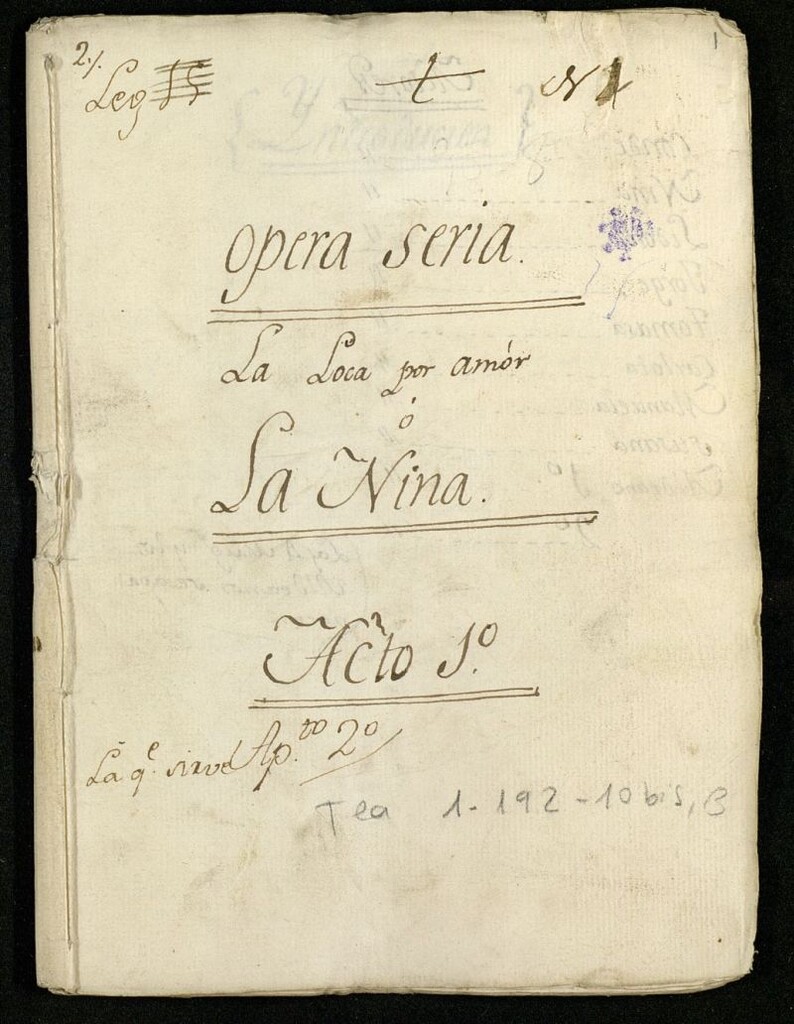 2./
1
Leg
N 1
opera seria.
La Loca por amór
ó
La Nina.
Acto 1º
La q.e sirve Ap.to 2º
Tea 1-192-10 bis, B